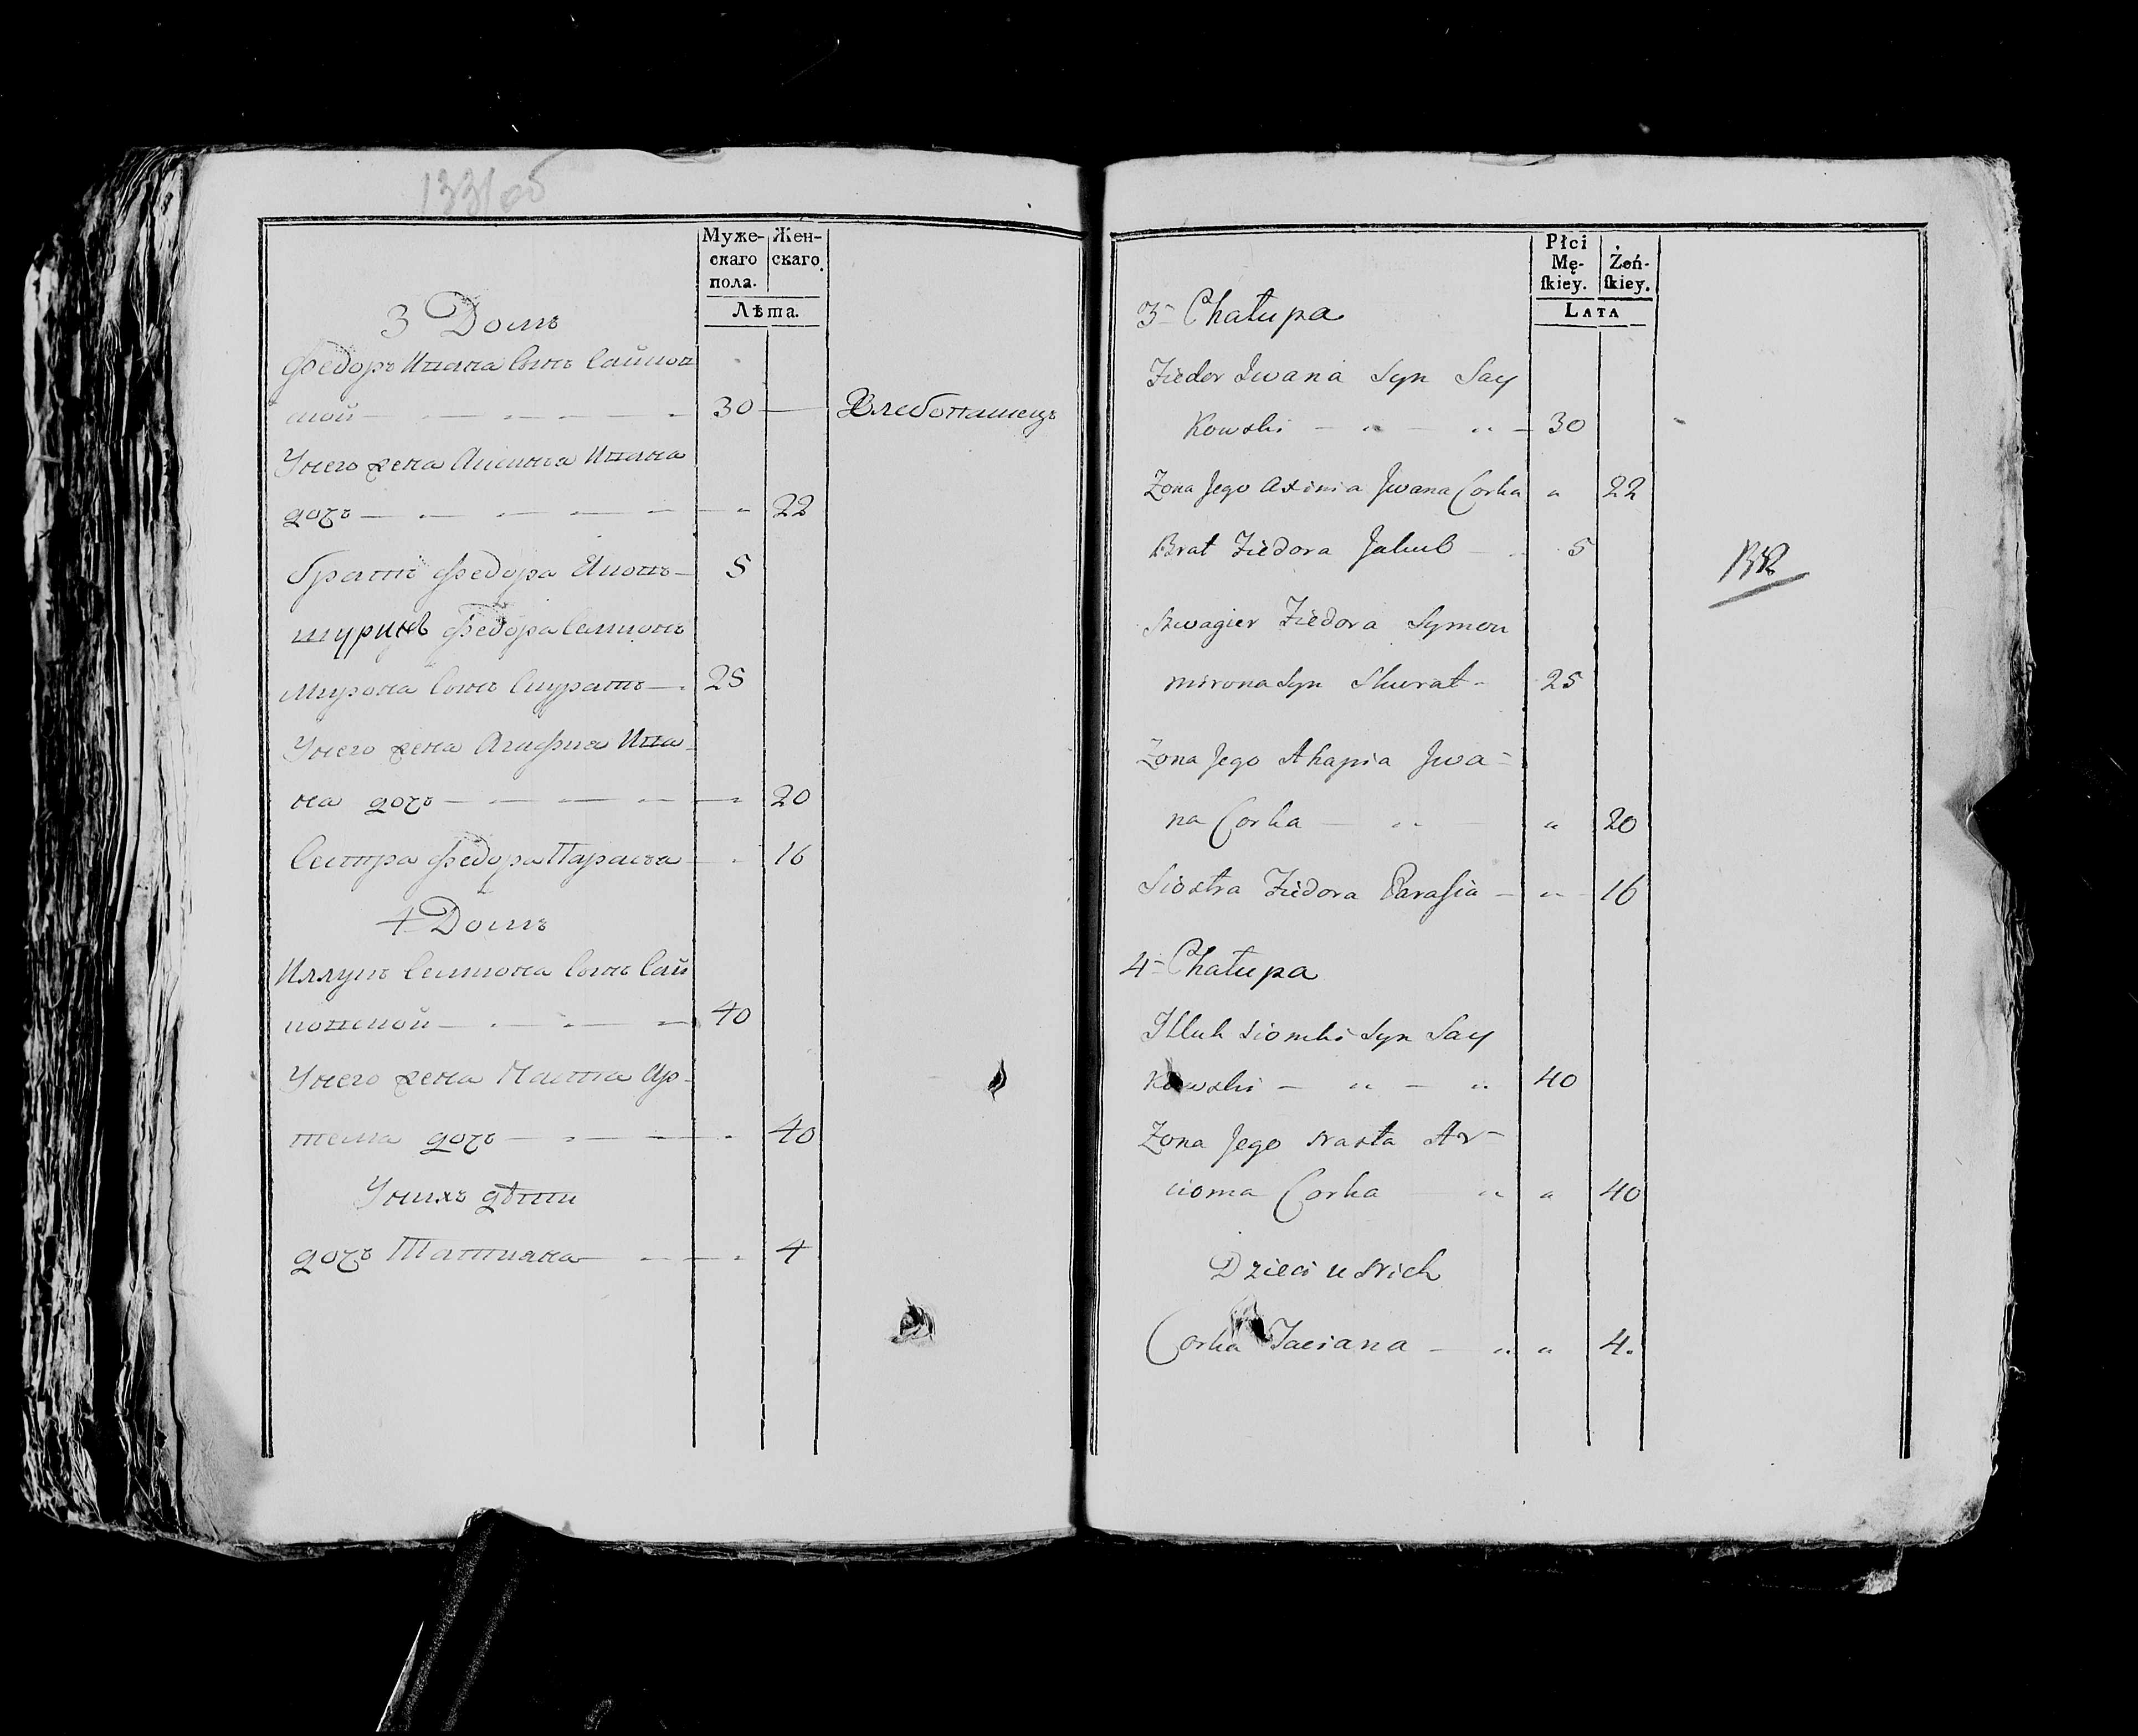 133/об
Муже-
скаго
пола.
Жен-
скаго.
Лѣта.
3 Домъ
Федоръ Ивана Сынъ Сайков
ской 30 Хлебопашецъ
У него жена Аксинья Ивана
дочь 22
братъ Федора Яковъ 5
шуринъ Федора Семионъ
Мирона Сынъ Скуратъ 25
У него жена Агафия Ива-
на дочь 20
Сестра Федора Парасья 16
4 Домъ
Иллукъ Семиона Сынъ Сай
ковской 40
У него жена Наста Ар-
тема дочь 40
У нихъ дѣти
дочь Татияна 4
Płci
Mę-
ſkiey.
Żeń-
ſkiey.
LATA
3 Chałupa
Fiedor Iwana Syn Say
Kowski 30
Zona Jego Axinia Jwana Corka 22
Brat Fiedora Jakub 5
Szwagier Fiedora Symon
Mirona Syn Skurat 25
Zona Jego Ahapia Jwa=
na Corka 20
Siostra Fiedora Paraſia 16
4 Chałupa
Illuk Siomki Syn Say
Kowski 40
Zona Jego Nasta Ar-
cioma Corka 40
Dzieci u Nich
Corka Taciana 4.